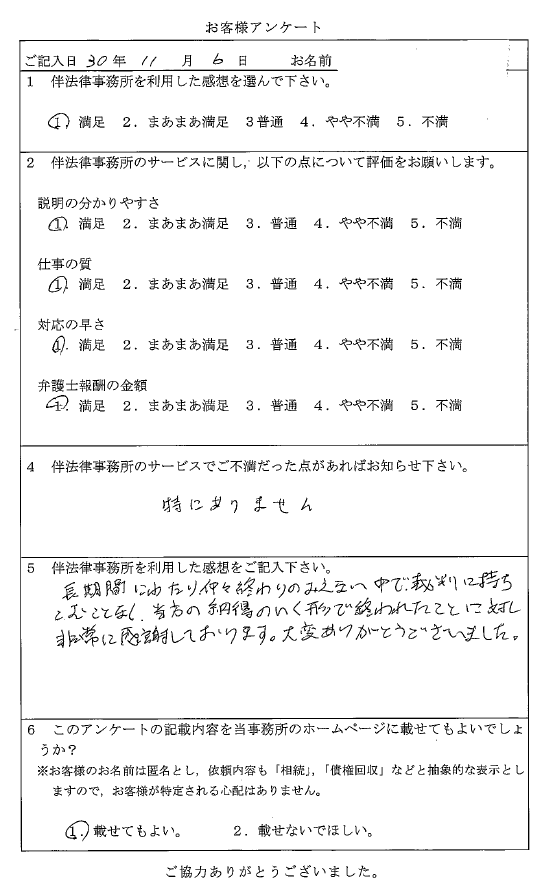 お客様アンケート
ご記入日 30年 11 月 6 日 お名前
1 伴法律事務所を利用した感想を選んで下さい。
1. 満足 2. まあまあ満足 3 普通 4. やや不満 5. 不満
2 伴法律事務所のサービスに関し, 以下の点について評価をお願いします。
説明の分かりやすさ
1. 満足 2. まあまあ満足 3. 普通 4. やや不満 5. 不満
仕事の質
1. 満足 2. まあまあ満足 3. 普通 4. やや不満 5. 不満
対応の早さ
1. 満足 2. まあまあ満足 3. 普通 4. やや不満 5. 不満
弁護士報酬の金額
1. 満足 2. まあまあ満足 3. 普通 4. やや不満 5. 不満
4 伴法律事務所のサービスでご不満だった点があればお知らせ下さい。
特にありません
5 伴法律事務所を利用した感想をご記入下さい。
長期間にわたり仲々終わりのみえない中で裁判に持ち
こむことなく、当方の納得のいく形で終われたことに対し
非常に感謝しております。大変ありがとうございました。
6 このアンケートの記載内容を当事務所のホームページに載せてもよいでしょ
うか?
※お客様のお名前は匿名とし, 依頼内容も「相続」,「債権回収」などと抽象的な表示とし
ますので, お客様が特定される心配はありません。
1. 載せてもよい。 2. 載せないでほしい。
ご協力ありがとうございました。